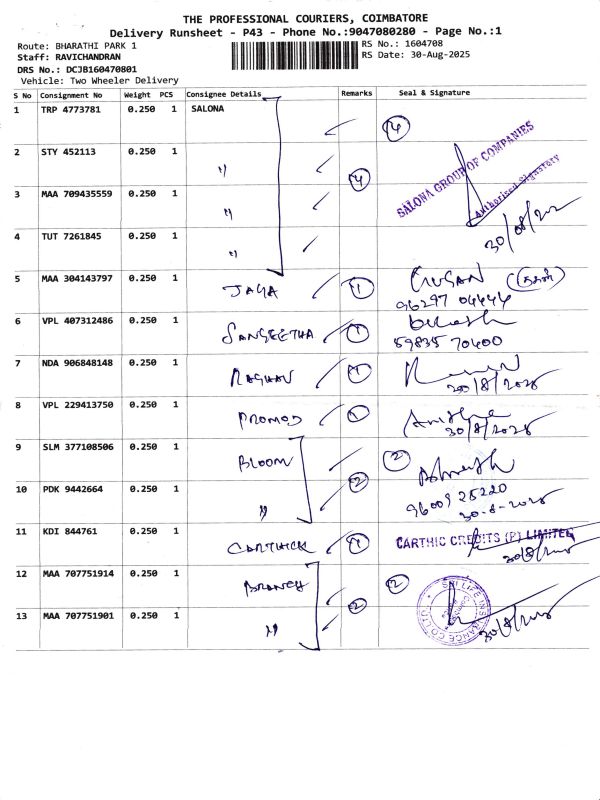 THE PROFESSIONAL COURIERS, COIMBATORE
Delivery Runsheet - P43 - Phone No.:9047080280 - Page No.:1
Route: BHARATHI PARK 1
RS No.: 1604708
Staff: RAVICHANDRAN
RS Date: 30-Aug-2025
DRS No.: DCJB160470801
Vehicle: Two Wheeler Delivery
S No Consignment No Weight PCS Consignee Details Remarks Seal & Signature
1 TRP 4773781 0.250 1 SALONA 4
2 STY 452113 0.250 1 " 4
SALONA GROUP OF COMPANIES
Authorised Signatory
3 MAA 709435559 0.250 1 "
4 TUT 7261845 0.250 1 "
5 MAA 304143797 1 0.250 JAYA 1
96297 04444
6 VPL 407312486 0.250 1 SANGEETHA 1
59835 70400
7 NDA 906848148 0.250 1 RAGHAV 1
30/8/2025
8 VPL 229413750 0.250 1 PROMOD 1
30/8/2025
9 SLM 377108506 0.250 1 BLOOM 2
10 PDK 9442664 0.250 1 " 2
96009 25220
30-8-2025
11 KDI 844761 0.250 1 CARTHICK 1
CARTHIC CREDITS (P) LIMITED
30/8/2025
12 MAA 707751914 0.250 1 BRANCH 2
13 MAA 707751901 0.250 1 " 2
SBI LIFE INSURANCE CO LTD
30/8/2025